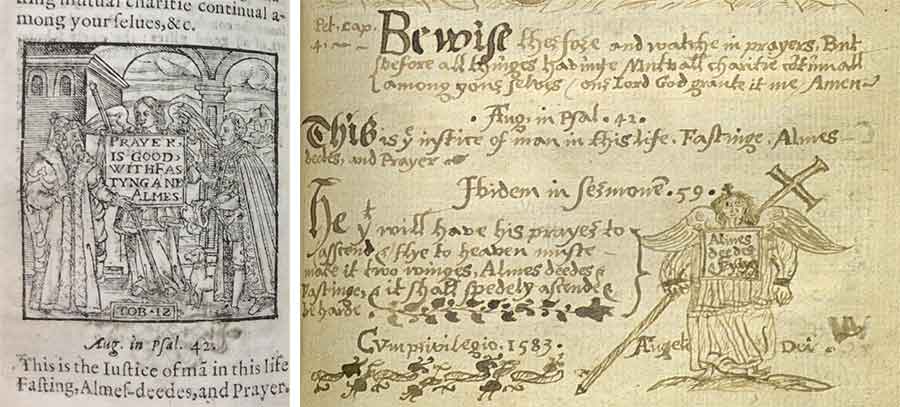 king mutual charitie continual a-
mong your selues, &c.
PRAYER,
IS GOOD
WITH FAS
TYNG AND
ALMES
TOB·12
Aug. in Psal. 42.
This is the Iustice of mã in this life
Fasting, Almes-deedes, and Prayer.
Pet. cap.
4.
Be wise therfore and watche in prayers. But
before all thinges havinge Mutuall charitie cõtinuall
among your selves / our Lord God grante it me Amen
·Aug. in Psal. 42.
This is yͤ iustice of man in this life. Fastinge. Almes-
deedes, and Prayer
Ibidem in Sermonẽ. 59.
He yͭ will have his prayer to
ascend & flye to heaven muste
make it two winges, Almes deedes &
Fastinge, & it shall spedely ascende &
be harde.
Almes
deedes
&
Cum privilegio. 1583.
Angel Dei.